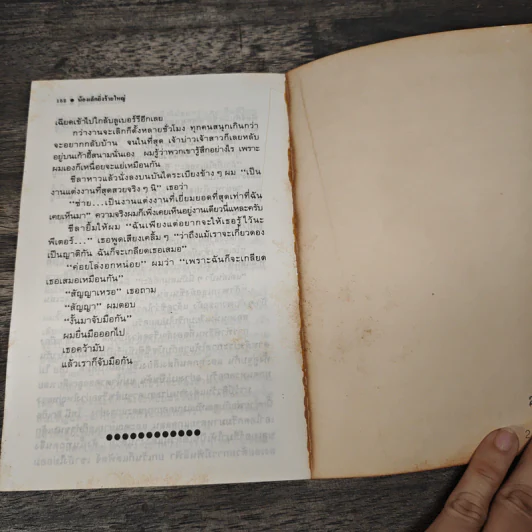 188 ● น้องหลัดตัวร้ายใหญ่
เฉียดเข้าไปใกล้บลูเบอร์รี่อีกเลย
กว่างานจะเลิกก็ตั้งหลายชั่วโมง ทุกคนสนุกเกินกว่า
จะอยากกลับบ้าน จนในที่สุด เจ้าบ่าวเจ้าสาวก็เลยหลับ
อยู่บนเก้าอี้สนามนั่นเอง ผมรู้ว่าพวกเขารู้สึกอย่างไร เพราะ
ผมเองก็เหนื่อยจะแย่เหมือนกัน
ชีลาหาวแล้วนั่งลงบนบันไดระเบียงข้าง ๆ ผม “เป็น
งานแต่งงานที่สุดสวยจริง ๆ นิ” เธอว่า
“ช่าย...เป็นงานแต่งงานที่เยี่ยมยอดที่สุดเท่าที่ฉัน
เคยเห็นมา” ความจริงผมก็เพิ่งเคยเห็นอยู่งานเดียวนี่แหละครับ
ชีลายิ้มให้ผม “ฉันเพียงแต่อยากจะให้เธอรู้ไว้นะ
พีเตอร์...” เธอพูดเสียงเคลิ้ม ๆ “ว่าถึงแม้เราจะเกี่ยวดอง
เป็นญาติกัน ฉันก็จะเกลียดเธอเสมอ”
“ค่อยโล่งอกหน่อย” ผมว่า “เพราะฉันก็จะเกลียด
เธอเสมอเหมือนกัน”
“สัญญาเหรอ” เธอถาม
“สัญญา” ผมตอบ
“งั้นมาจับมือกัน”
ผมยื่นมือออกไป
เธอคว้ามับ
แล้วเราก็จับมือกัน